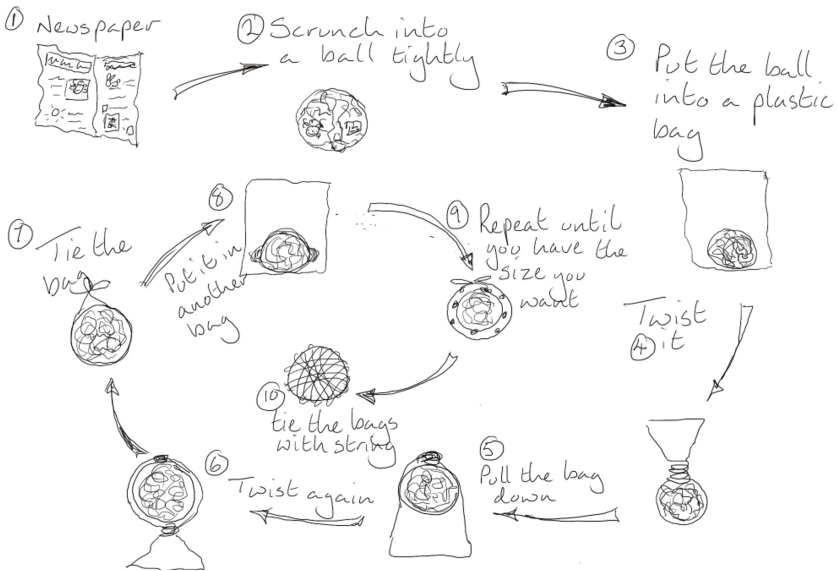 ① Newspaper
② Scrunch into
a ball tightly
③ Put the ball
into a plastic
bag
Twist
④ it
⑤ Pull the bag
down
⑥ Twist again
⑦ Tie the
bag
⑧ Put it in
another
bag
⑨ Repeat until
you have the
size you
want
⑩ tie the bags
with string